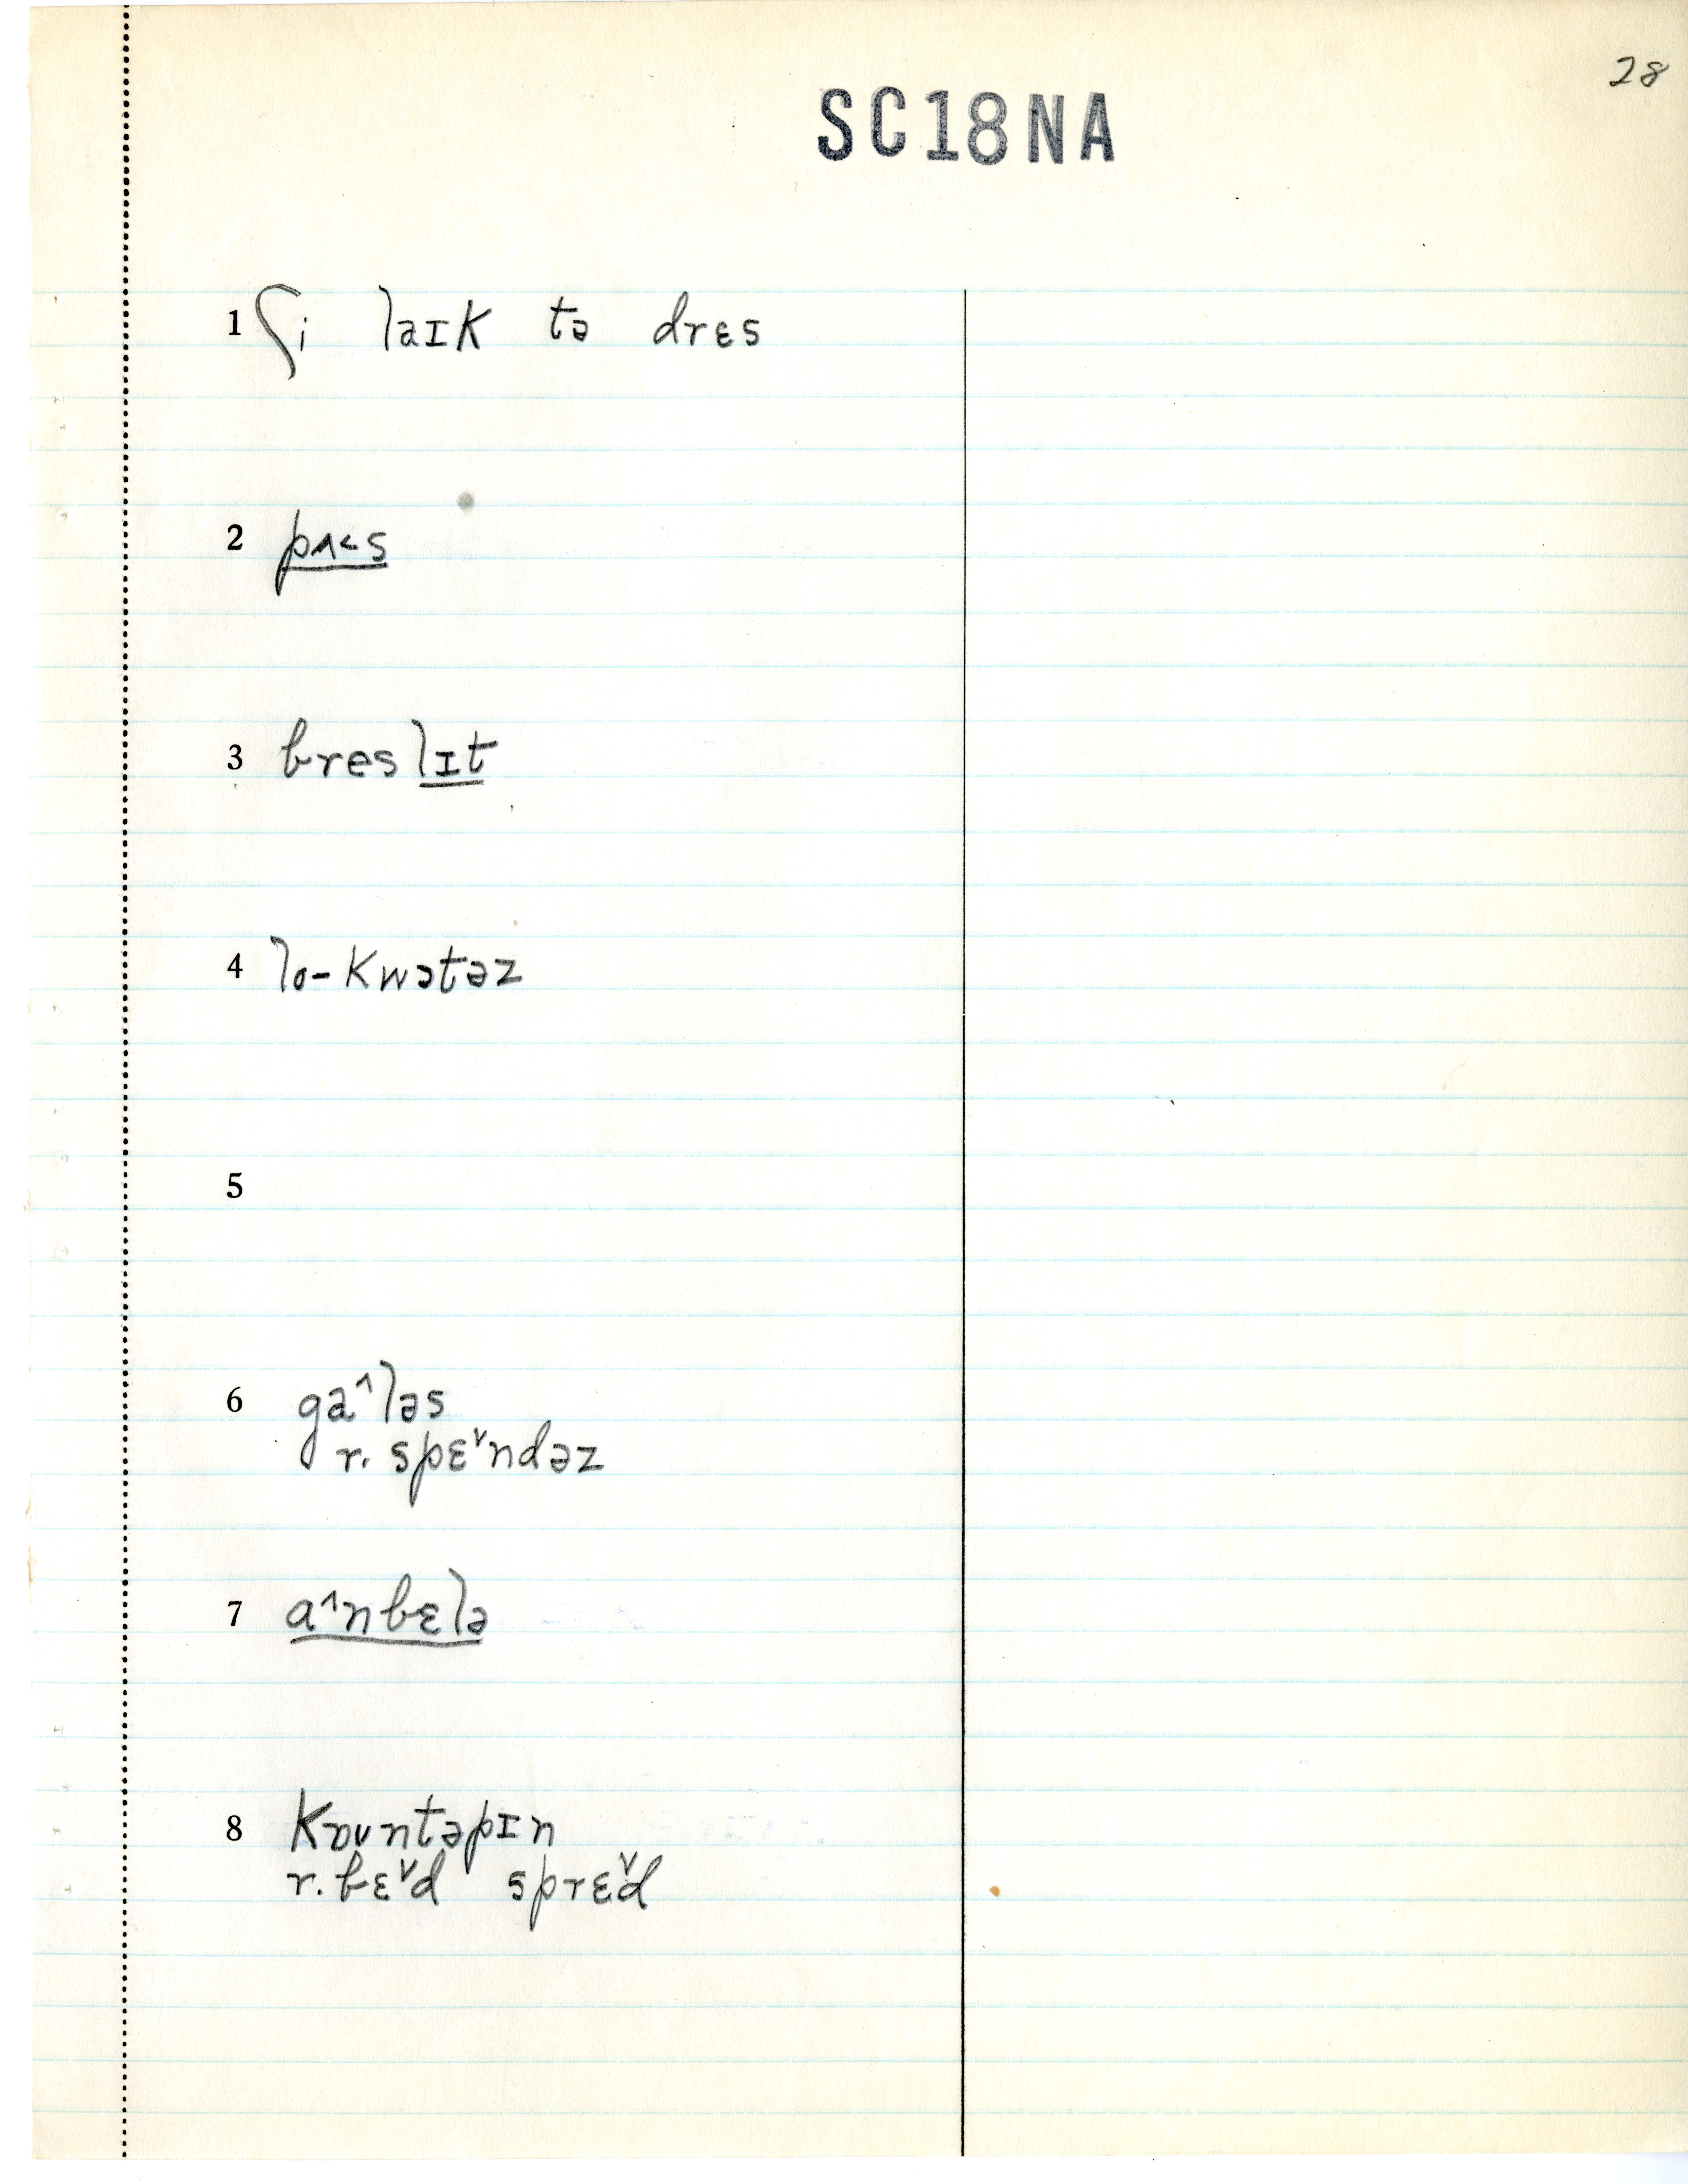 28
SC18NA
1 ʃi laɪk tə drɛs
2 pʌ˂s
3 breslɪt
4 lo-kwɔtəz
5
6 ga^ləs
r. spɛ˅ndəz
7 a^nbɛlə
8 kɒʊntəpɪn
r. bɛ˅d sprɛ˅d